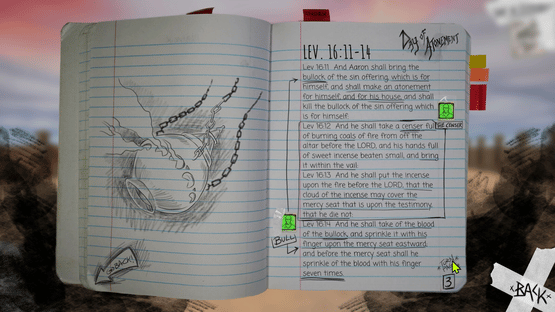 Day of Atonement
LEV. 16:11-14
Lev 16:11 And Aaron shall bring the
bullock of the sin offering, which is for
himself, and shall make an atonement
for himself, and for his house, and shall
kill the bullock of the sin offering which
is for himself.
Lev 16:12 And he shall take a censer full
of burning coals of fire from off the
altar before the LORD, and his hands full
of sweet incense beaten small, and bring
it within the vail.
Lev 16:13 And he shall put the incense
upon the fire before the LORD, that the
cloud of the incense may cover the
mercy seat that is upon the testimony,
that he die not.
Lev 16:14 And he shall take of the blood
of the bullock, and sprinkle it with his
finger upon the mercy seat eastward;
and before the mercy seat shall he
sprinkle of the blood with his finger
seven times.
BULL
3
BACK